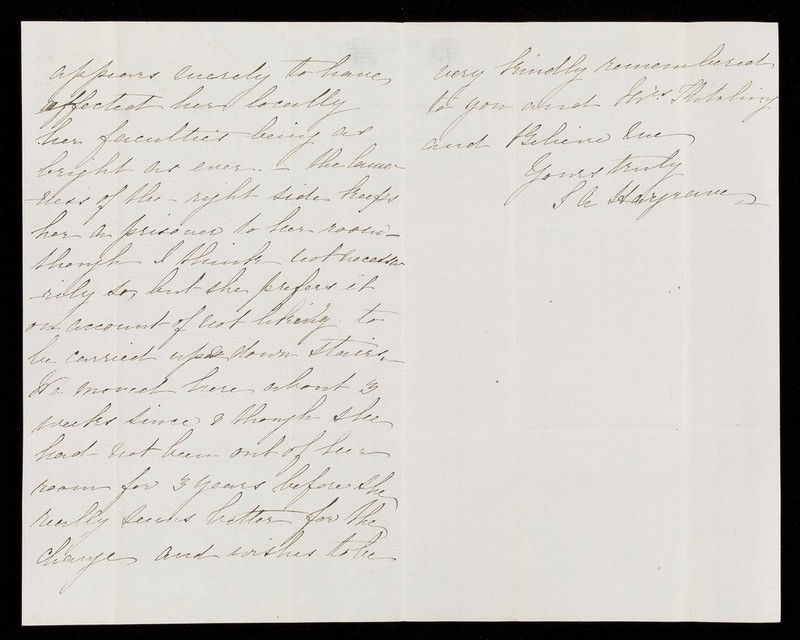 appears merely to have
affected her locally
her faculties being as
bright as ever. – the lame-
-ness of the right side keeps
her a prisoner to her room –
though I think not necessa-
-rily so, but she prefers it
on account of not liking to
be carried up & down stairs. –
We moved here about 3
weeks since & though she
had not been out of her
room for 3 years before she
really seems better for the
change and wishes to be
very kindly remembered
to you and Mrs.
and believe me
Yours truly
S A Hargreave